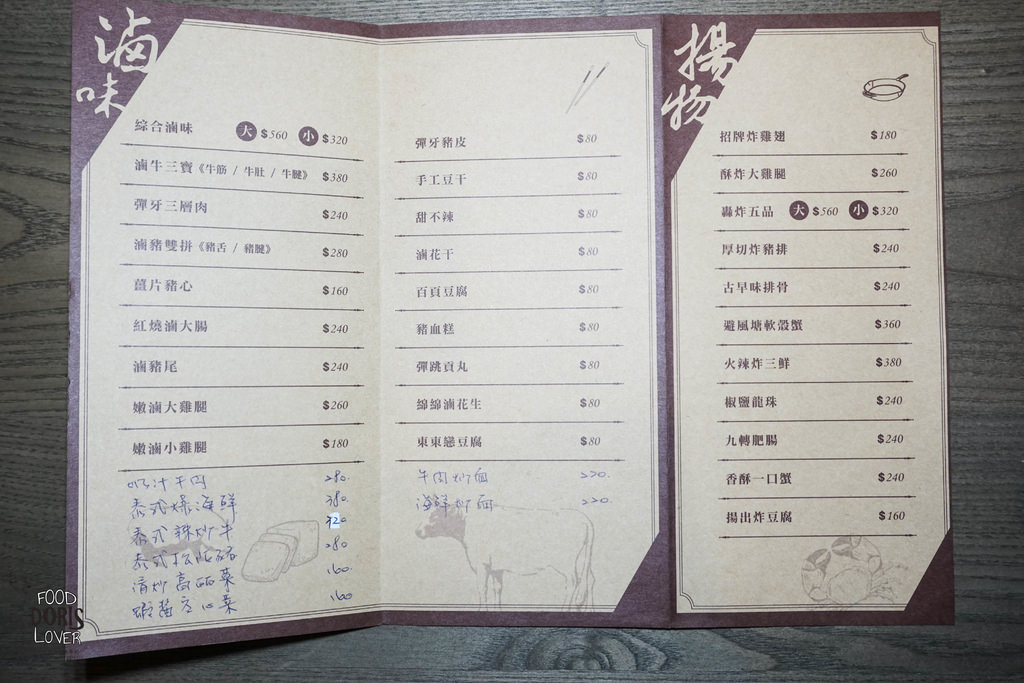 滷味
綜合滷味 大 $560 小 $320
滷牛三寶《牛筋 / 牛肚 / 牛腱》 $380
彈牙三層肉 $240
滷豬雙拼《豬舌 / 豬腱》 $280
薑片豬心 $160
紅燒滷大腸 $240
滷豬尾 $240
嫩滷大雞腿 $260
嫩滷小雞腿 $180
汁牛肉 280.
泰式爆海鮮 380.
泰式辣炒牛 320
泰式松阪豬 280
清炒高麗菜 160.
蝦醬空心菜 160
彈牙豬皮 $80
手工豆干 $80
甜不辣 $80
滷花干 $80
百頁豆腐 $80
豬血糕 $80
彈跳貢丸 $80
綿綿滷花生 $80
東東戀豆腐 $80
牛肉炒面 220.
海鮮炒面 220.
揚物
招牌炸雞翅 $180
酥炸大雞腿 $260
轟炸五品 大 $560 小 $320
厚切炸豬排 $240
古早味排骨 $240
避風塘軟殼蟹 $360
火辣炸三鮮 $380
椒鹽龍珠 $240
九轉肥腸 $240
香酥一口蟹 $240
揚出炸豆腐 $160
FOOD
DORIS
LOVER